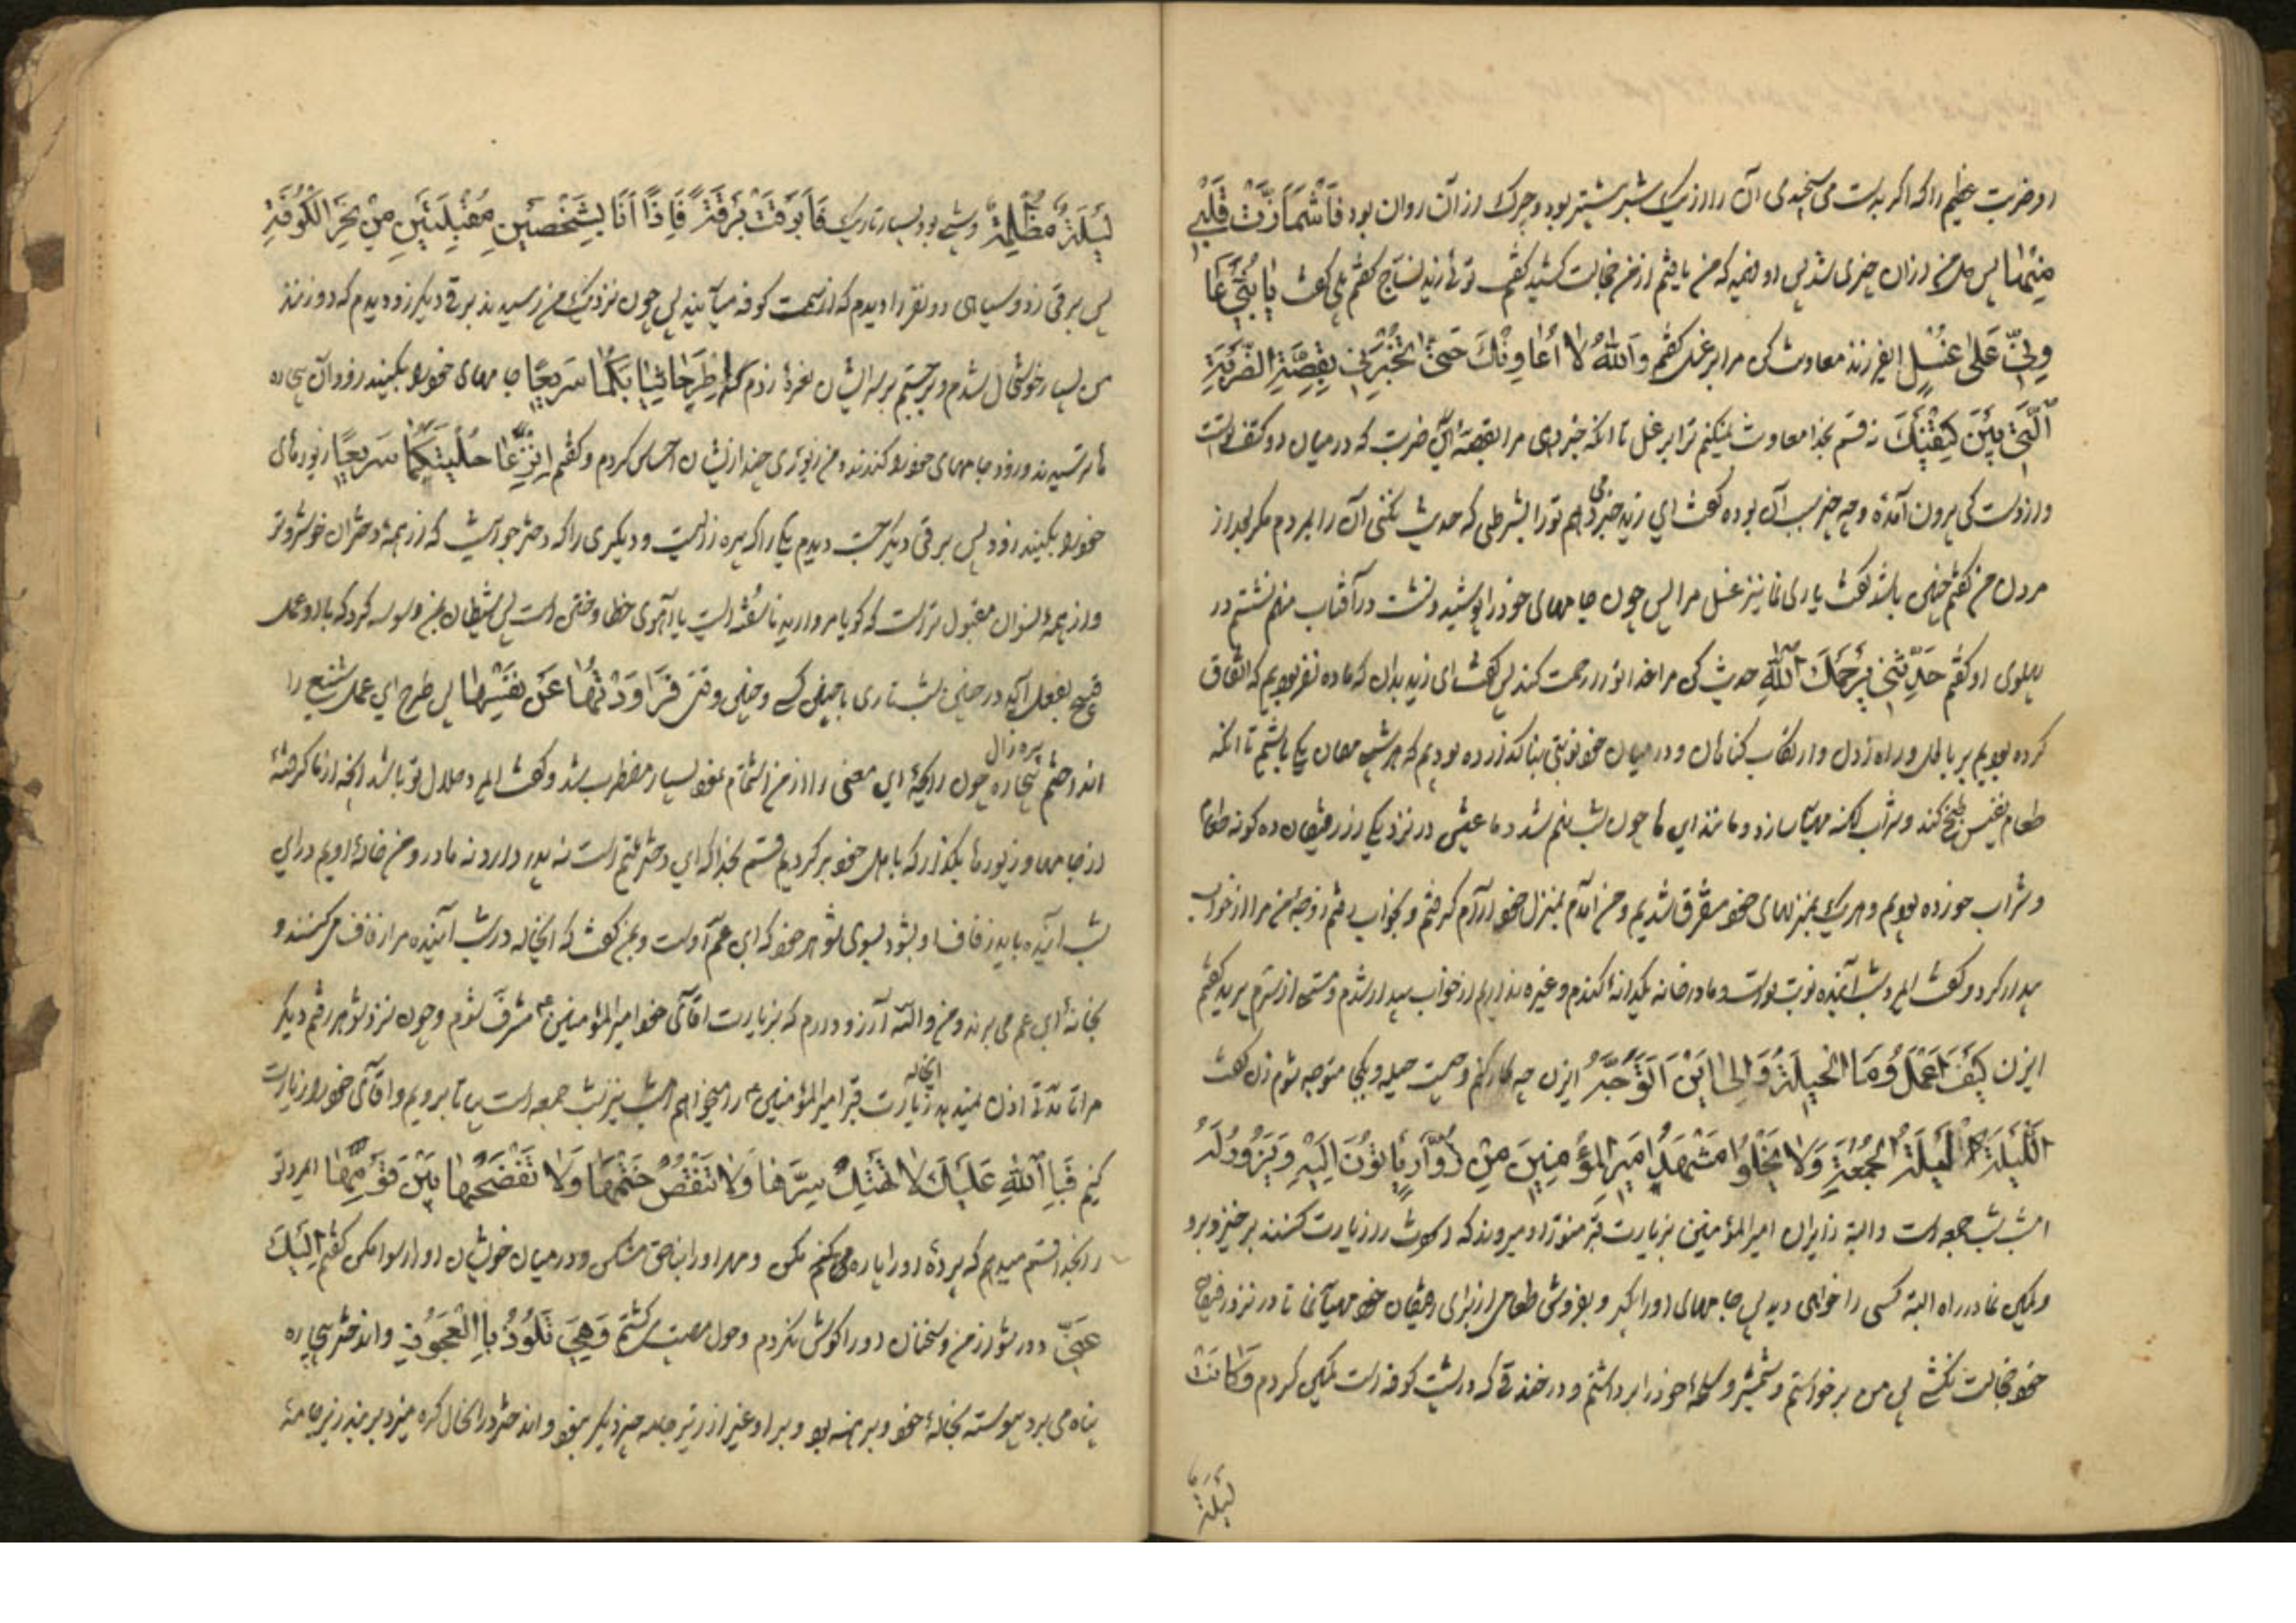 او ضربت عظیم را که اگر بدست می سنجیدی آن را از یک شبر بیشتر بود و چرک از آن روان بود فَاشْمَأَزَّتْ قَلْبِی
مِنْهَا پس دل من از آن چیزی شد پس او فهمید که من یافتم از من خجالت کشید گفتم تو زید نساج گفتم بلی گفت یَا بُنَیَّ عَا
وِنِّی عَلی غُسْلٍ ای فرزند معاونت کن مرا بر غسل گفتم وَاللهُ لا أُعَاوِنُكَ حَتّی تُخْبِرَنِی بِقِصَّةِ الضَّرْبَةِ
الَّتِی بَیْنَ كَتِفَیْكَ نه قسم بخدا معاونت نمیکنم ترا بر غسل تا آنکه خبر دهی مرا بقصه آن ضربت که در میان دو کتف تست
و از دست کی برون آمده و چه چیز سبب آن بوده گفت ای زید خبر می دهم تو را بشرطی که حدیث نکنی آن را بمردم مگر بعد از
مردن من گفتم چنین باشد گفت یاری نما نیز غسل مرا پس چون جامهای خود را پوشید و نشست در آفتاب منهم نشستم در
پهلوی او گفتم حَدِّثْنِی یَرْحَمُكَ اللهُ حدیث کن مرا خدا تو را رحمت کند پس گفت ای زید بدان که ما ده نفر بودیم که اتفاق
کرده بودیم بر باطل و راه زدن و ارتکاب گناهان و در میان خود نوبتی بنا گذارده بودیم که هر شب مهمان یکی باشیم تا آنکه
طعام نفیس طبخ کند و شراب کهنه مهیا سازد و مانند این ها چون شب نهم شد و ما عشی در نزد یکی از رفیقان ده گونه طعام
و شراب خورده بودیم و هر یک بمنزلهای خود متفرق شدیم و من آمدم بمنزل خود آرام گرفتم و بخواب رفتم زوجهٔ من مرا از خواب
بیدار کرد و گفت ای مرد شب آینده نوبت تو است و ما در خانه یکدانه گندم و غیره نداریم از خواب بیدار شدم و مستی از سرم پرید گفتم
ایزن كَیْفَ أَعْمَلُ وَمَا الْحِیلَةُ وَإِلی أَیْنَ أَتَوَجَّهُ ایزن چه کار کنم و چیست حیله و بکجا متوجه شوم زن گفت
اللَّیْلَةَ لَیْلَةُ الْجُمُعَةِ وَلا یَخْلُوا مَشْهَدُ أَمِیرِ الْمُؤْمِنِینَ مِنْ زُوَّارٍ یَأْتُونَ إِلَیْهِ وَیَزُورُونَهُ
امشب شب جمعه است و البته زایران امیر المؤمنین بزیارت قبر منور او میروند که او را زیارت کنند برخیز و برو
و کمین نما در راه البته کسی را خواهی دید پس جامهای او را بگیر و بفروش طعامی از برای رفیقان خود مهیا نما تا در نزد رفیقان
خود خجالت نکشی پس من برخواستم و شمشیر و اسلحه خود را برداشتم و در خندقی که در پشت کوفه است کمین کردم وَكَانَتْ
لَیْلَةً
لَیْلَةٌ مُظْلِمَةٌ و شبی بود بسیار تاریک فَأَبْرَقَتْ بَرْقَةً فَإِذًا أَنَا بِشَخْصَیْنِ مُقْبِلَیْنِ مِنْ نَحْوِ الْكُوفَةِ
پس برقی زد و سیاهی دو نفر را دیدم که از سمت کوفه میآیند پس چون نزدیک من رسیدند برقی دیگر زد و دیدم که دو زنند
من بسیار خوشحال شدم و برجستم بر سر ایشان نعرهٔ زدم که إِطْرَحَا ثِیَابَكُمَا سَرِیعًا جامهای خود را بکنید زود آن بیچاره
ها ترسیدند و زود جامهای خود را کندند و من زیوری چند از ایشان احساس کردم و گفتم إِنْزِعَا حُلِیَّكُمَا سَرِیعًا زیورهای
خود را بکنید زود پس برقی دیگر جست دیدم یکی را که پیره زنیست و دیگری را که دختر جوانیست که از همه دختران خوشروتر
و از همه نسوان مقبول تر است که گویا مروارید ناسفته است یا آهوی خطا و ختن است پس شیطان بمن وسوسه کرد که با او عمل
قبیح بفعل آید در چنین شب تاری با چنین کسی و چنین وقت فَرَاوَدْتُهَا عَنْ نَفْسِهَا پس طرح این عمل شنیع را
انداختم بیچاره پیره زال چون رایحهٔ این معنی را از من استشمام نمود بسیار مضطرب شد و گفت ای مرد حلال تو باشد آنچه از ما گرفتهٔ
از جامها و زیورها بگذار که باهل خود برگردیم قسم بخدا که این دختر یتیم است نه پدر دارد نه مادر و من خالهٔ اویم در این
شب آینده باید زفاف او بشود بسوی شوهر خود که ابن عم اوست و بمن گفت که ایخاله در شب آینده مرا زفاف می کنند و
بخانهٔ ابن عم می برند و من والله آرزو دارم که بزیارت آقای خود امیر المؤمنین ع مشرف شوم و چون نزد شوهر رفتم دیگر
مرا تا مدتی اذن نمیدهد ایخاله زیارت قبر امیر المؤمنین ع را میخواهم امشب نیز شب جمعه است بیا تا برویم و آقای خود را زیارت
کنیم فَبِاللهِ عَلَیْكَ لا تَهْتِكْ سِتْرَهَا وَلا تَنْقُصْ خَتْمَهَا وَلا تَفْضَحْهَا بَیْنَ قَوْمِهَا ای مرد تو
را بخدا قسم میدهم که پردهٔ او را پاره مکن و مهر او را بناحق مشکن و در میان خویشان او او را رسوا مکن گفتم إِلَیْكَ
عَنِّی دور شو از من و سخنان او را گوش نکردم وَهِیَ تَلُوذُ بِالْعَجُوزِ و آن دختر بیچاره
پناه می برد پیوسته بخالهٔ خود و برهنه بود و بر او غیر از زیر جامه چیز دیگر نبود و آن دختر در آنحال گره میزد بر بند زیر جامهٔ